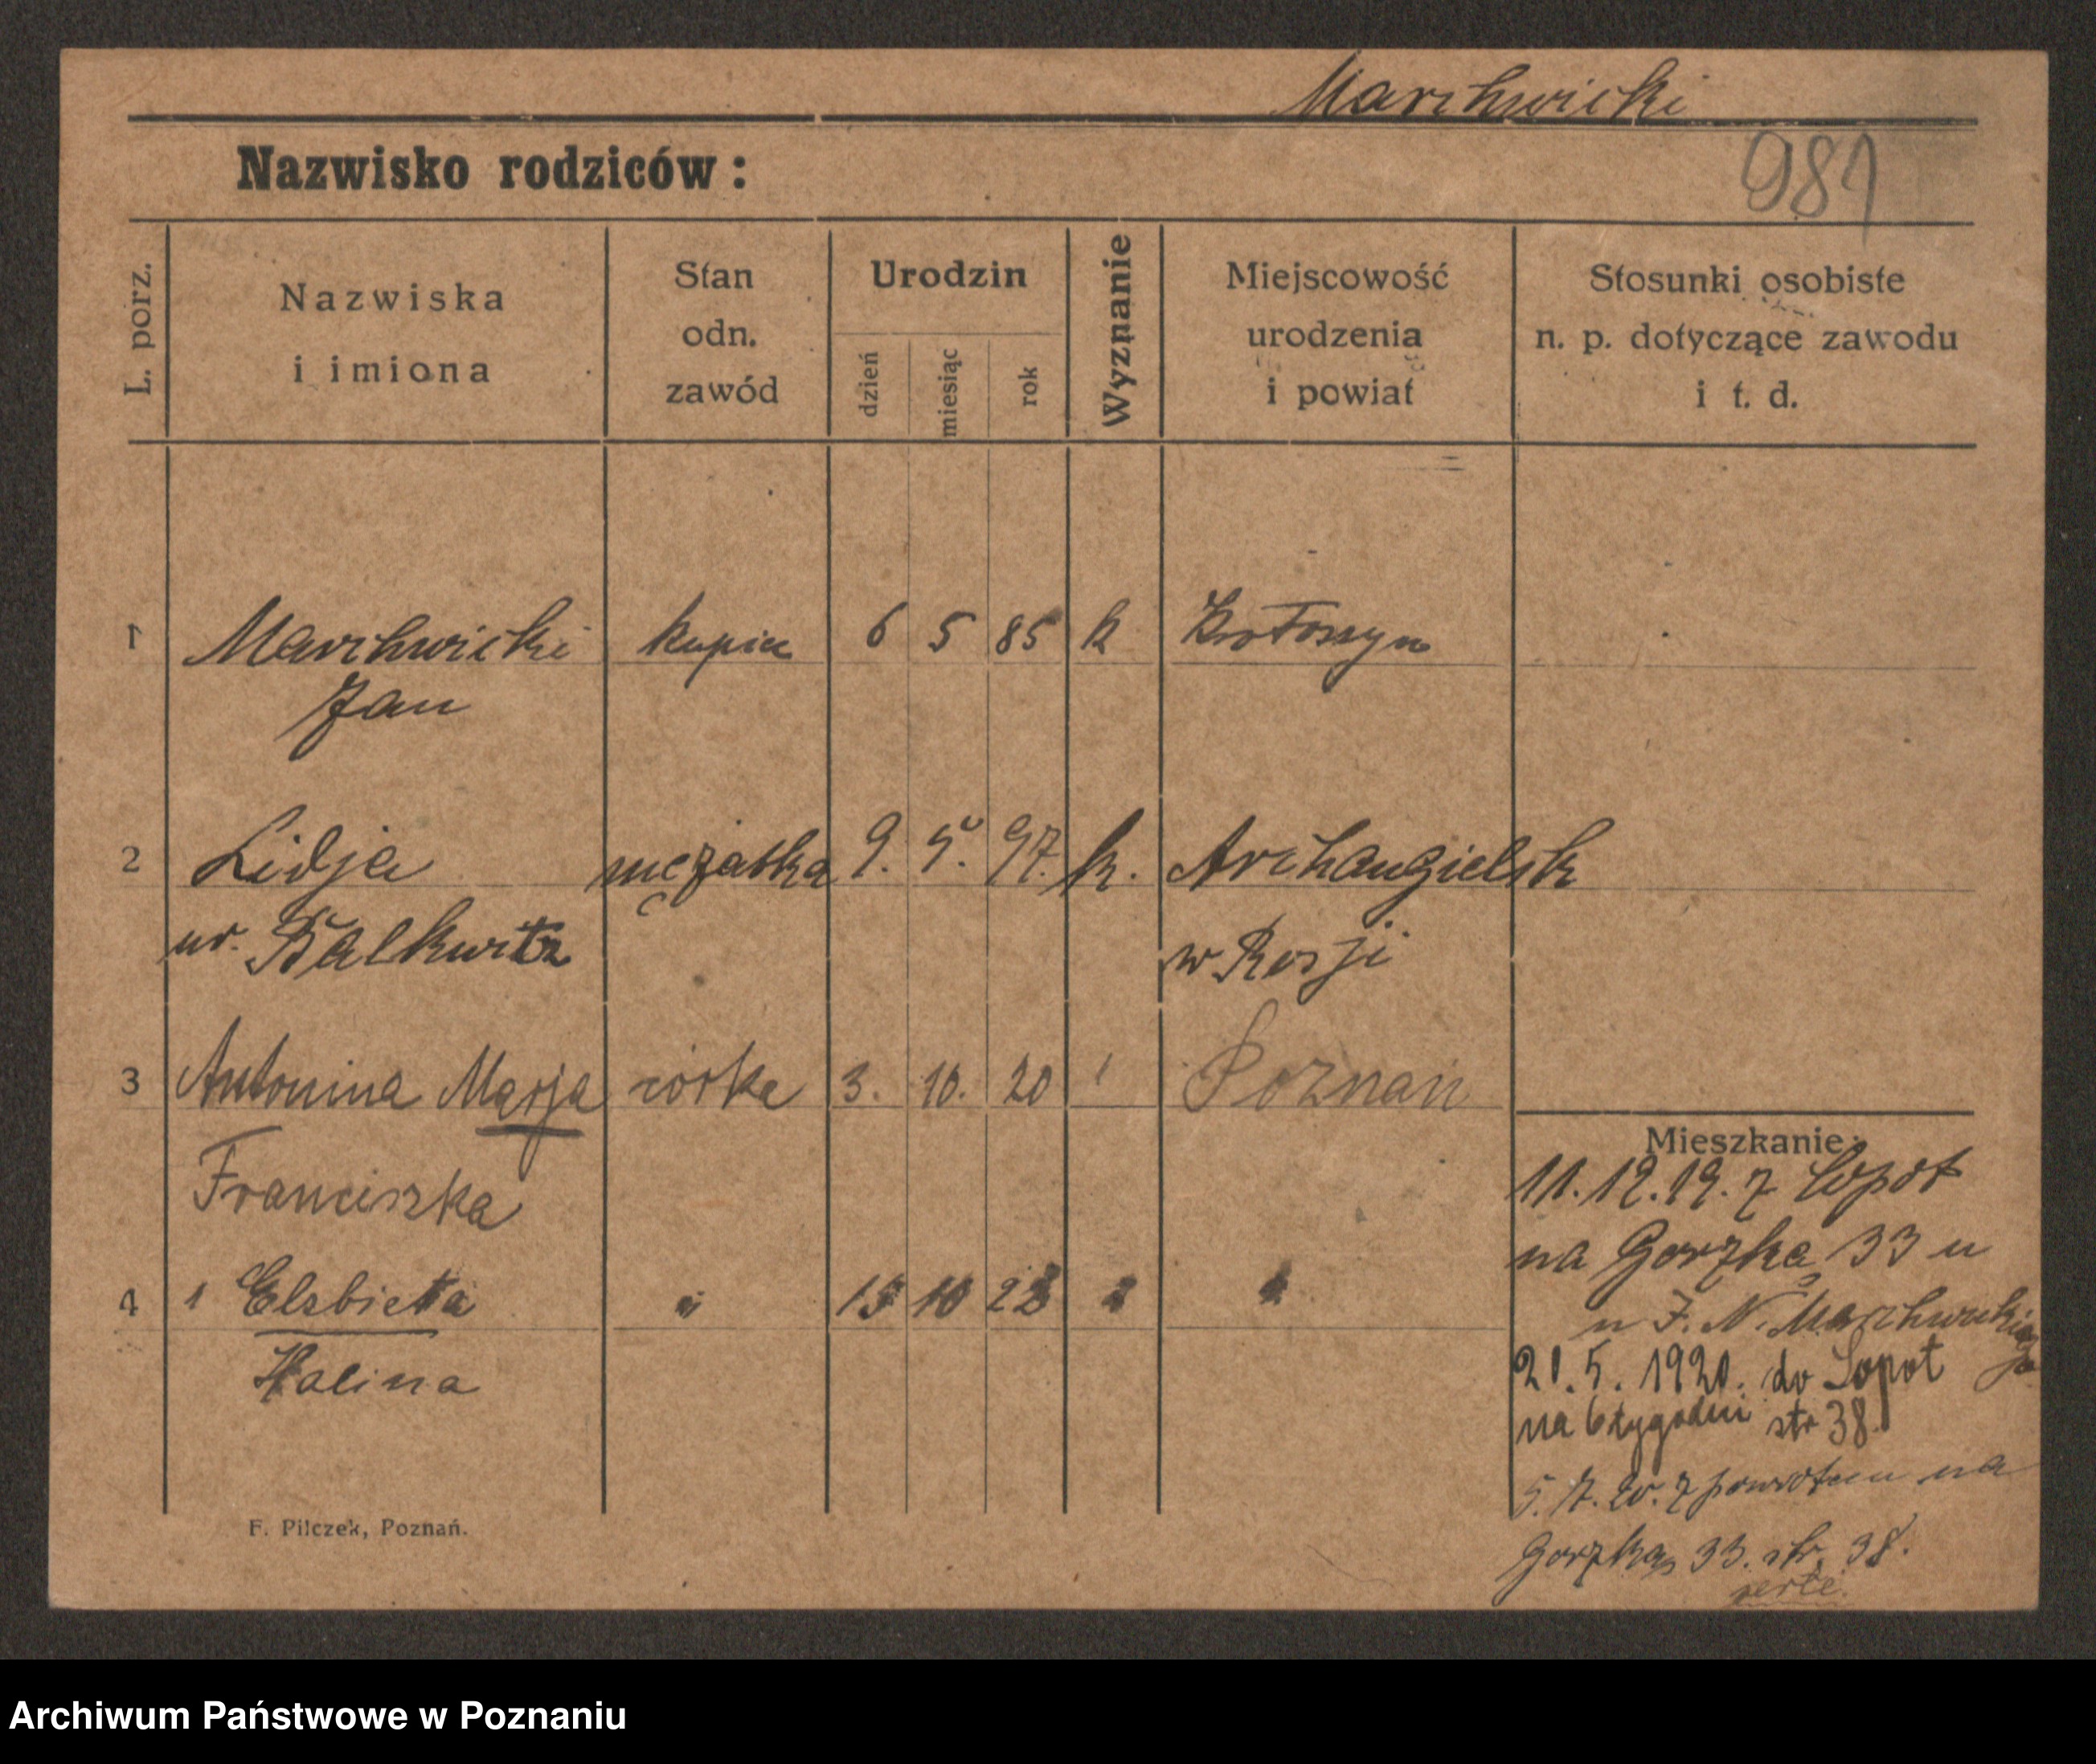 Marchwicki
Nazwisko rodziców:
981
L. porz.
Nazwiska
i imiona
Stan
odn.
zawód
Urodzin
dzień
miesiąc
rok
Wyznanie
Miejscowość
urodzenia
i powiat
Stosunki osobiste
n. p. dotyczące zawodu
i t. d.
1 Marchwicki kupiec 6 5 85 k Krotoszyn
Jan
2 Lidja mężatka 9. 5. 97. k. Archangielsk
ur. Balkwitz w Rosji
3 Antonina Marja córka 3. 10. 20 Poznań
Franciszka
4 Elzbieta 10
Halina
Mieszkanie:
11.12.19. z Copot
na Gorzką 33 u
u J. N. Marchwickiego
21.5.1920. do Sopot
na 6 tygodni str 38
5.7.20. z powrotem na
Gorzką 33. str. 38.
verte.
F. Pilczek, Poznań.
Archiwum Państwowe w Poznaniu